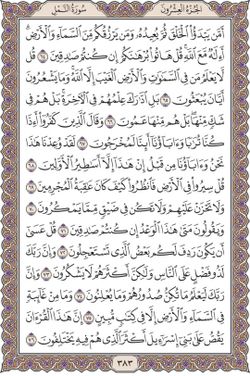 الجزء العشرون
سورة النمل
أمن يبدؤا الخلق ثم يعيده ومن يرزقكم من السماء والأرض
أءله مع الله قل هاتوا برهانكم إن كنتم صادقين ٦٤ قل
لا يعلم من في السموات والأرض الغيب إلا الله وما يشعرون
أيان يبعثون ٦٥ بل ادارك علمهم في الآخرة بل هم في
شك منها بل هم منها عمون ٦٦ وقال الذين كفروا أءذا
كنا ترابا وءاباؤنا أئنا لمخرجون ٦٧ لقد وعدنا هذا
نحن وءاباؤنا من قبل إن هذا إلا أساطير الأولين ٦٨
قل سيروا في الأرض فانظروا كيف كان عاقبة المجرمين ٦٩
ولا تحزن عليهم ولا تكن في ضيق مما يمكرون ٧٠
ويقولون متى هذا الوعد إن كنتم صادقين ٧١ قل عسى
أن يكون ردف لكم بعض الذي تستعجلون ٧٢ وإن ربك
لذو فضل على الناس ولكن أكثرهم لا يشكرون ٧٣ وإن
ربك ليعلم ما تكن صدورهم وما يعلنون ٧٤ وما من غائبة
في السماء والأرض إلا في كتاب مبين ٧٥ إن هذا القرءان
يقص على بني إسراءيل أكثر الذي هم فيه يختلفون ٧٦
٣٨٣